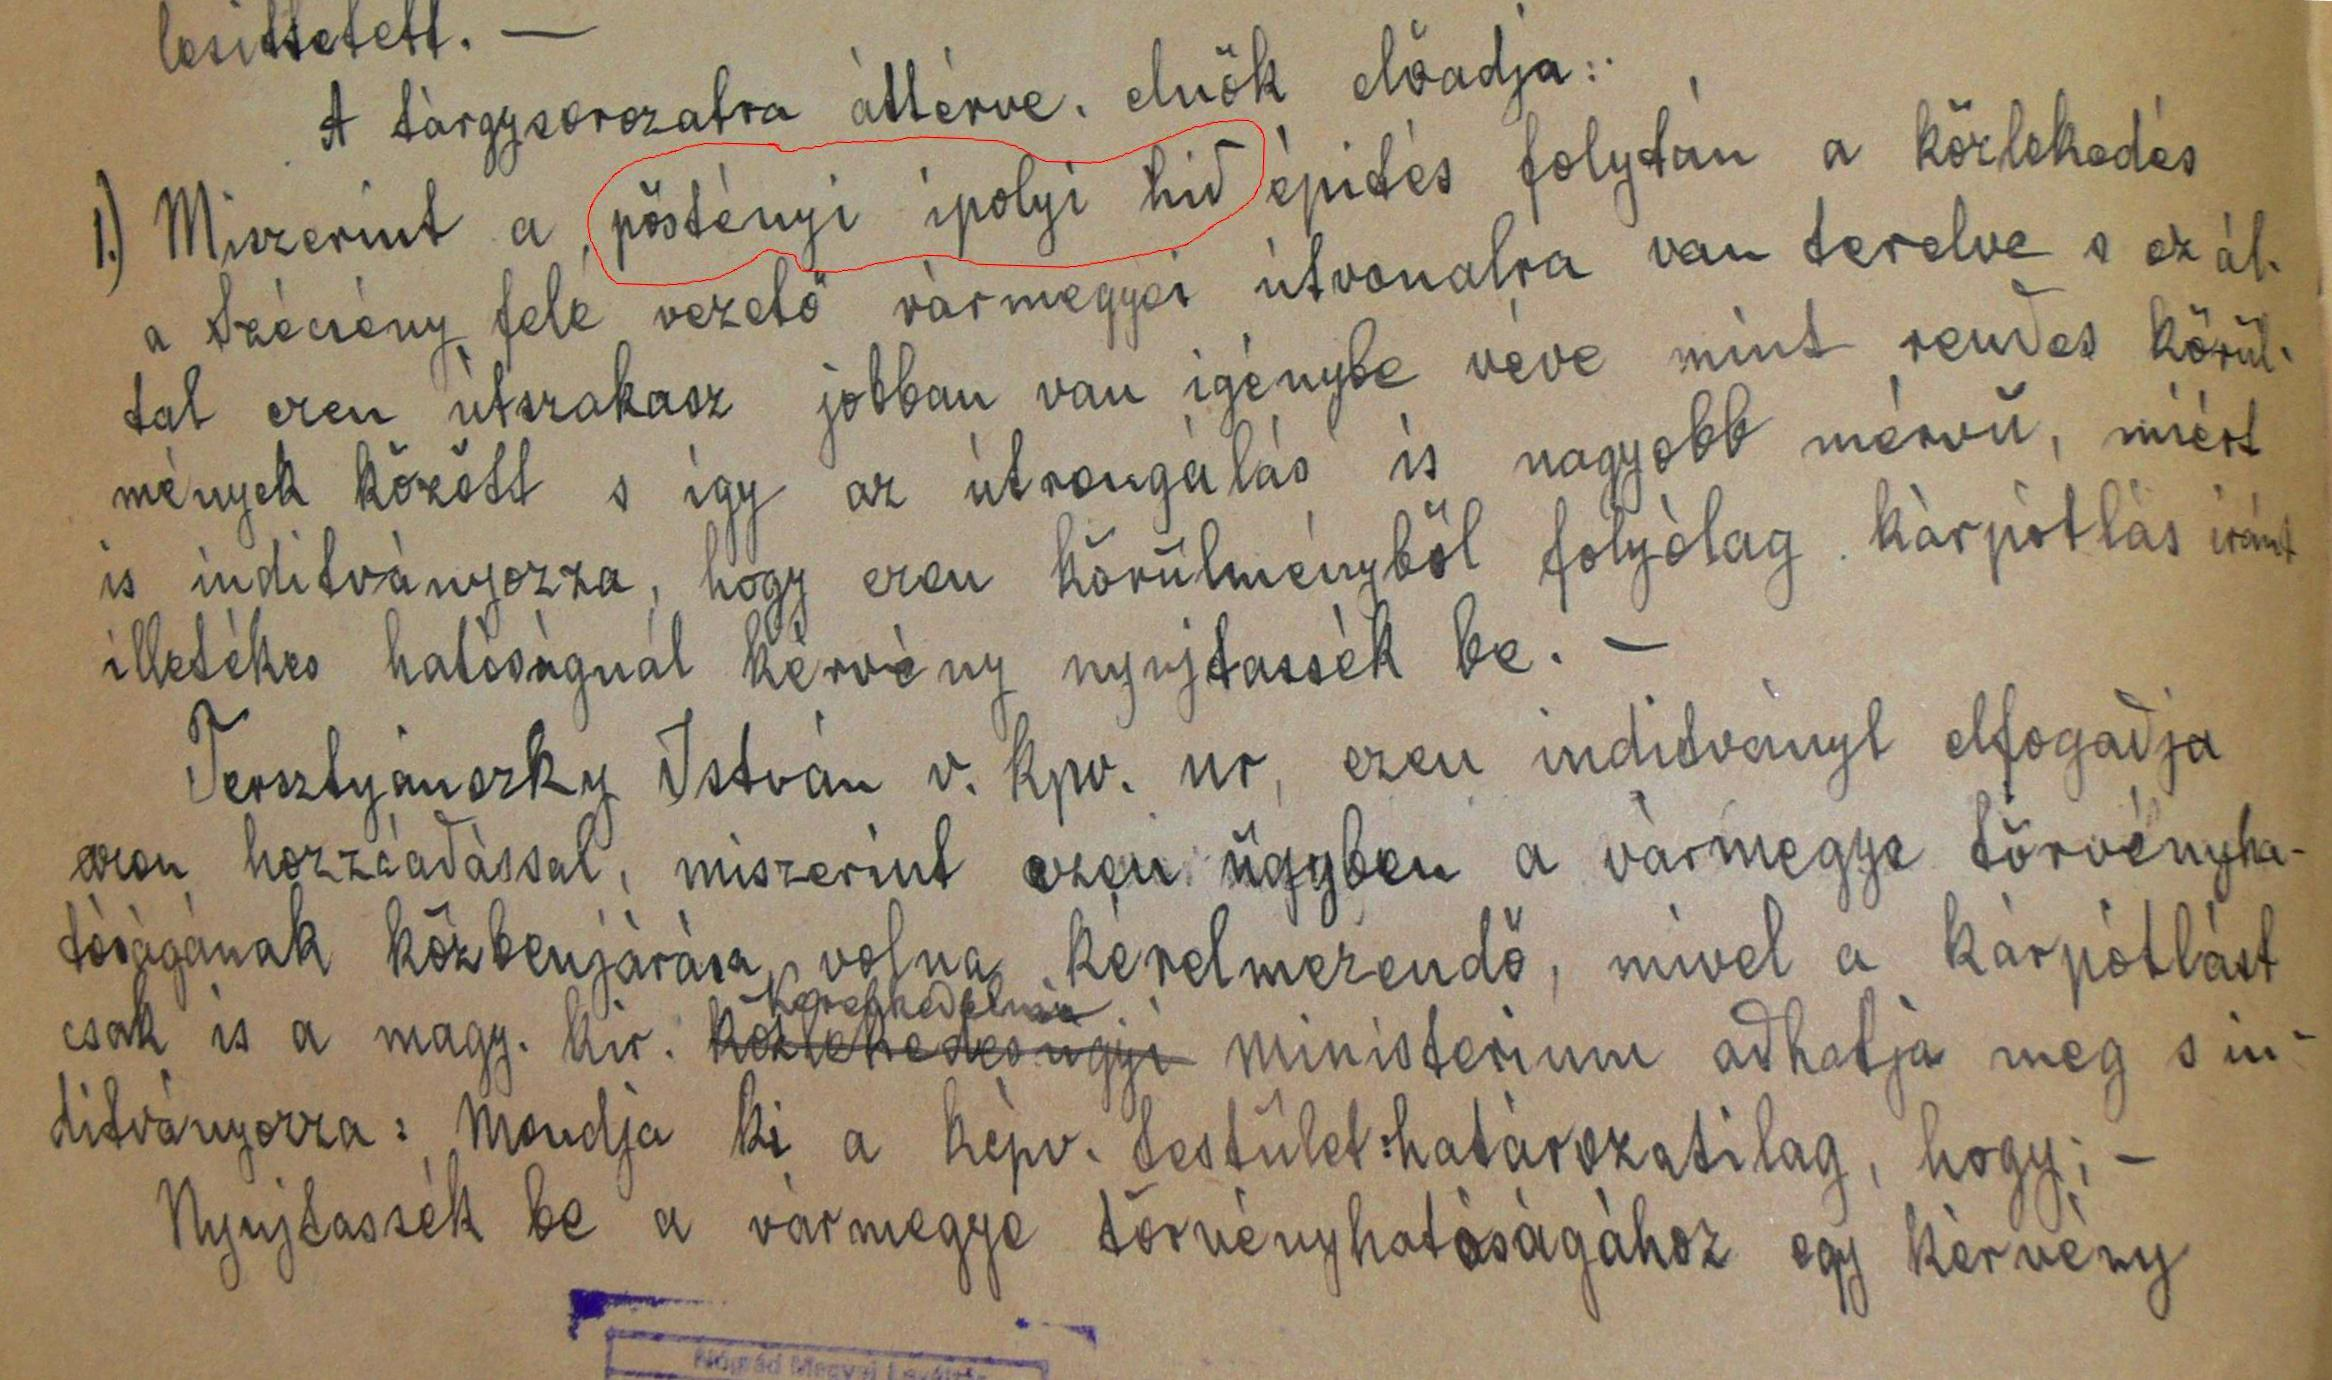 lesittetett. —
A tárgysorozatra áttérve, elnök előadja:
1.) Miszerint a pöstényi ipolyi hid épités folytán a közlekedés
a Szécsény felé vezető vármegyei útvonalra van terelve s ez ál-
tal ezen útszakasz jobban van igénybe véve mint rendes körül-
mények között s így az útrongálás is nagyobb mérvű, miért
is inditványozza, hogy ezen körülményből folyólag kárpótlás iránt
illetékes hatóságnál kérvény nyujtassék be. —
Tersztyánszky István v. kpv. ur, ezen inditványt elfogadja
azon hozzáadással, miszerint ezen ügyben a vármegye törvényha-
tóságának közbenjárása volna kérelmezendő, mivel a kárpótlást
Kereskedelmi
csak is a magy. kir. közlekedésügyi ministerium adhatja meg s in-
ditványozza: Mondja ki a képv. testület: határozatilag, hogy; —
Nyujtassék be a vármegye törvényhatóságához egy kérvény
Nógrád Megyei Levéltár